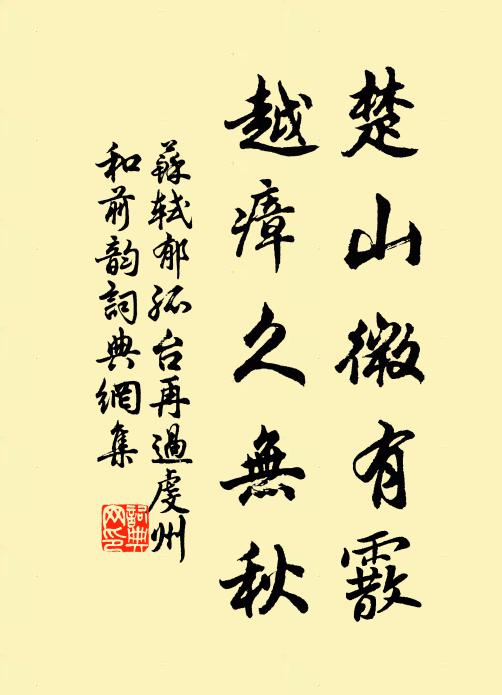 楚山微有霰
越瘴久無秋
蘇軾郁孤台再過虔州
和前韵詞典網集
詞典
网印